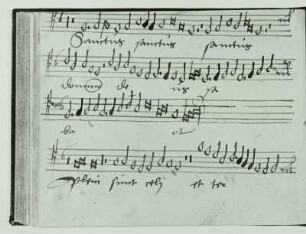 Sanctus sanctus sanctus
domin de us sa
ba ot
pleni sunt celi et ter